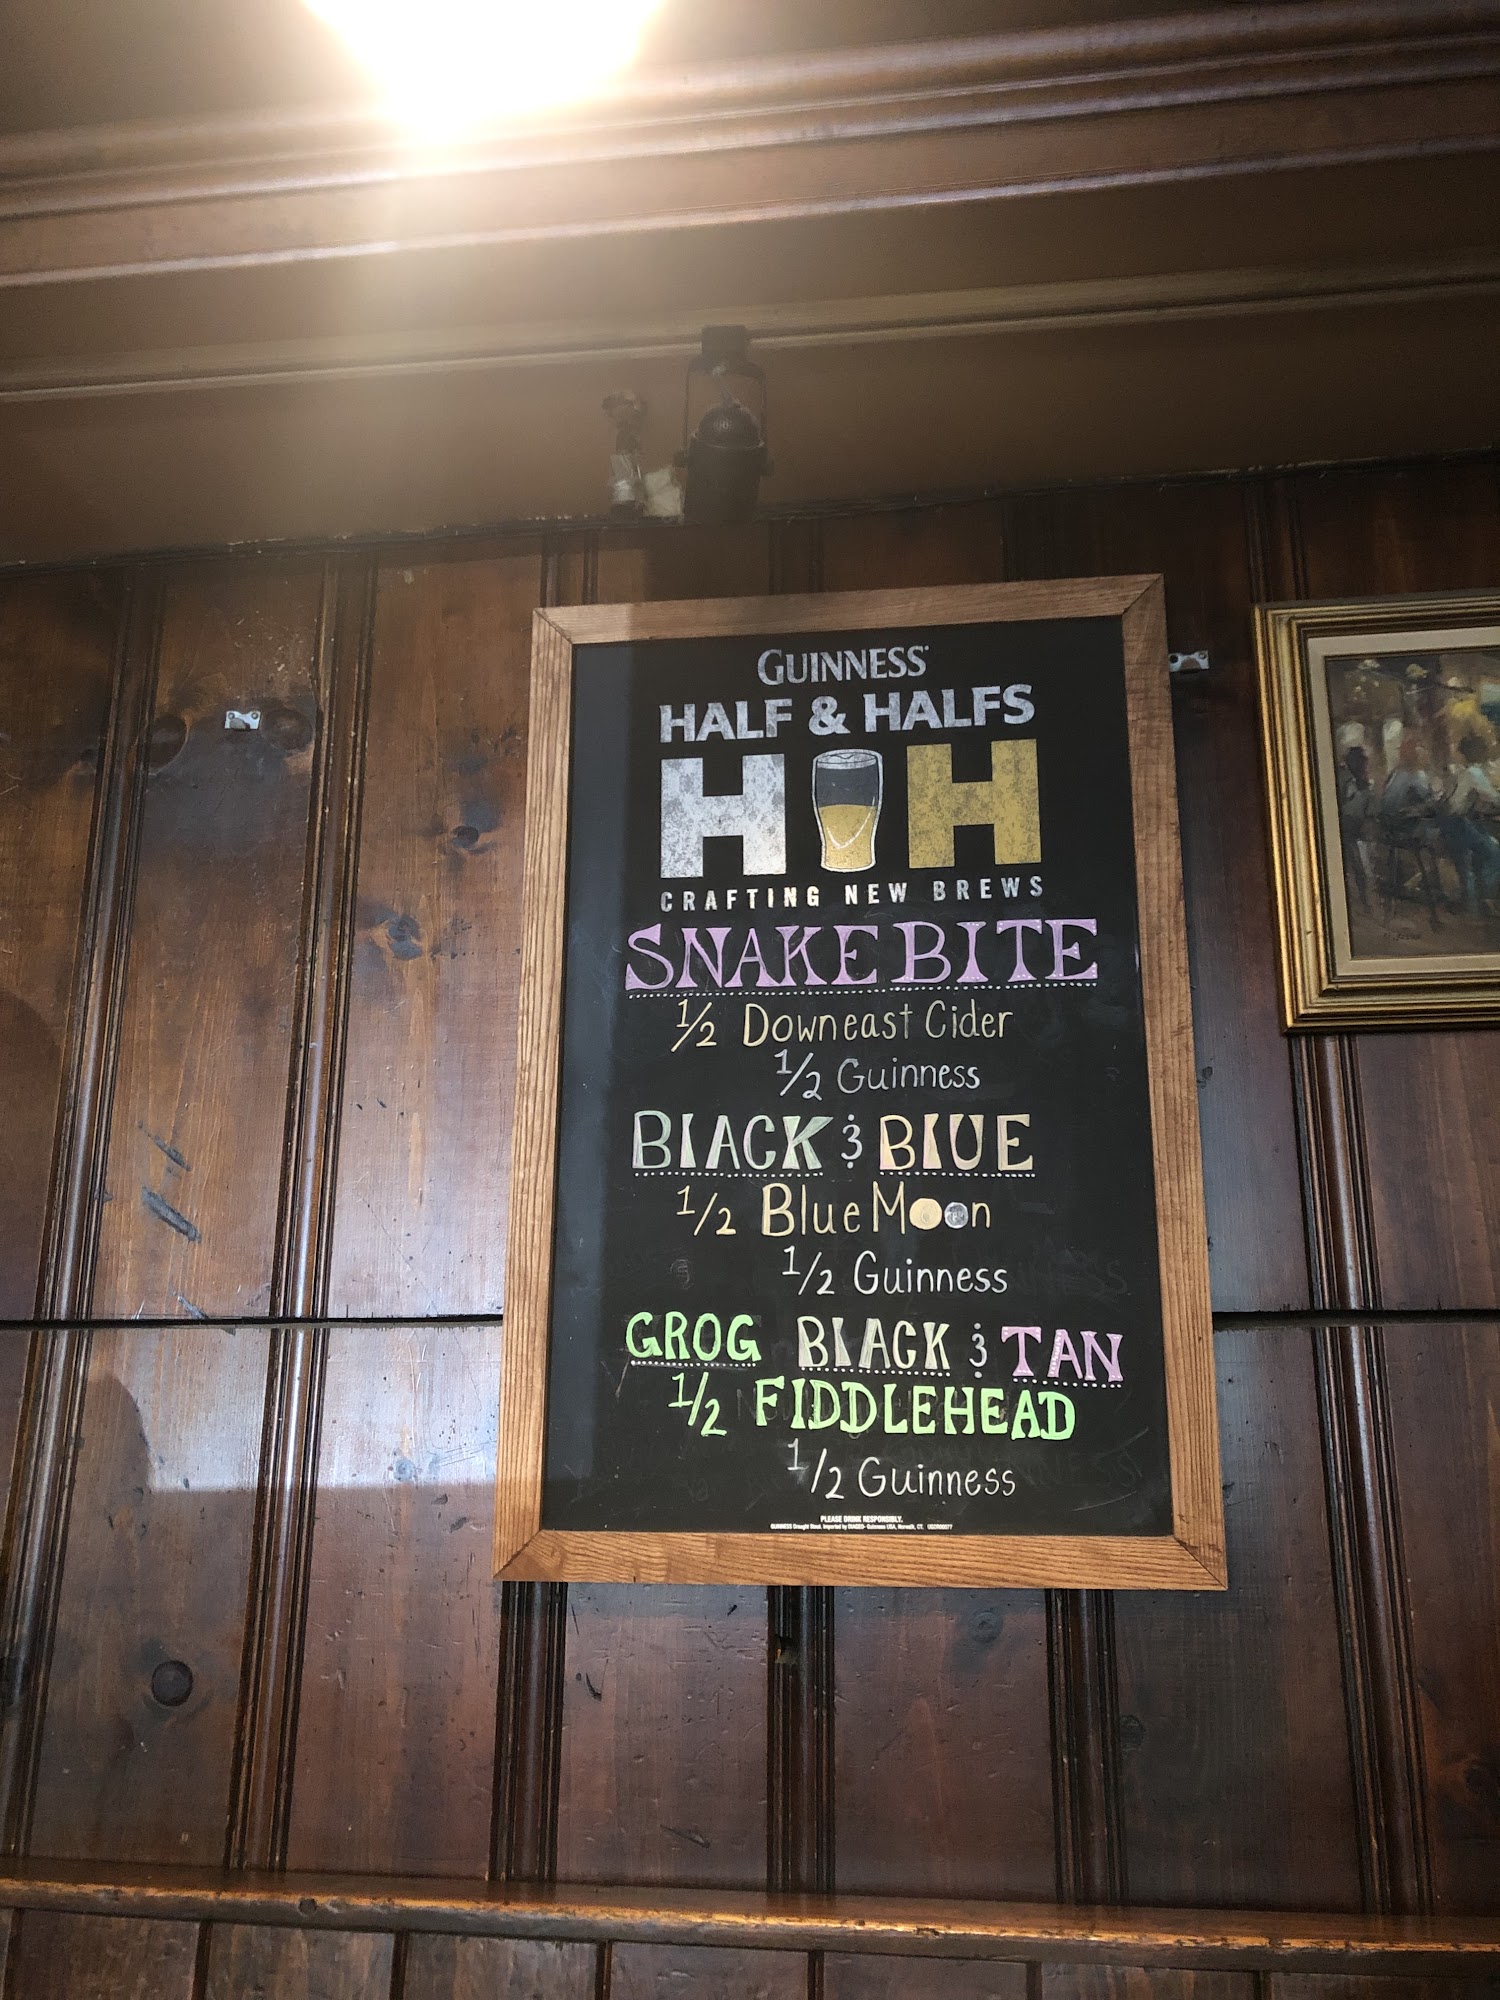 GUINNESS
HALF & HALFS
H H
CRAFTING NEW BREWS
SNAKEBITE
1/2 Downeast Cider
1/2 Guinness
BLACK & BLUE
1/2 Blue Moon
1/2 Guinness
GROG BLACK & TAN
1/2 FIDDLEHEAD
1/2 Guinness
PLEASE DRINK RESPONSIBLY.